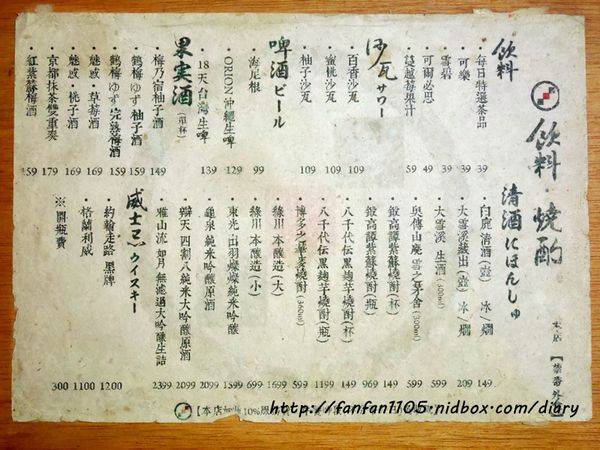 飲料・燒酌
本店
【禁帶外食】
飲料
・每日特選茶品 39
・可樂 39
・雪碧 49
・可爾必思 49
・蔓越莓果汁 59
沙瓦 サワー
・百香沙瓦 109
・蜜桃沙瓦 109
・柚子沙瓦 109
啤酒 ビール
・海尼根 99
・ORION 沖繩生啤 129
・18天台灣生啤 139
果実酒 (單杯)
・梅乃宿柚子酒 149
・鶴梅ゆず 柚子酒 159
・鶴梅ゆず 完熟梅酒 159
・魅惑・草莓酒 169
・魅惑・桃子酒 169
・京都抹茶雙重奏 179
・紅紫蘇梅酒 59
清酒 にほんしゅ
・白鹿 清酒(壺) 冰/燗 149
・大雪溪蔵出(壺) 冰/燗 209
・大雪溪 生酒 (300ml) 599
・奥傳山廃 雪之茅舍 (300ml) 599
・鍛高譚紫蘇燒酎(杯) 149
・鍛高譚紫蘇燒酎(瓶) 969
・八千代伝黑麴芋燒酎(杯) 149
・八千代伝黑麴芋燒酎(瓶) 1199
・博多之華麥燒酎 (360ml) 599
・綠川 本釀造(大) 1699
・綠川 本釀造(小) 699
・東光 出羽燦燦純米吟釀 1599
・龜泉 純米吟釀原酒 2099
・辯天 四割八純米大吟釀原酒 2099
・雅山流 如月無濾過大吟釀生詰 2399
威士忌 ウイスキー
・約翰走路 黑牌 1200
・格蘭利威 1100
※ 開瓶費 300
【本店加收10%服
http://fanfan1105.nidbox.com/diary